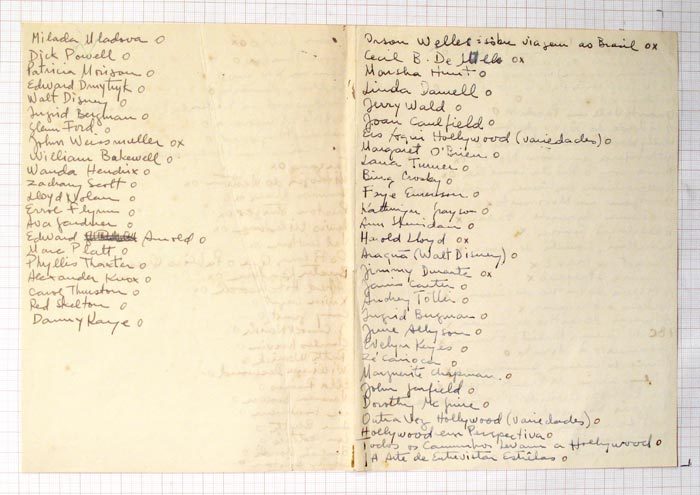 Milada Mladova o
Dick Powell o
Patricia Morison o
Edward Dmytryk o
Walt Disney o
Ingrid Bergman o
Glenn Ford o
Johnn Weissmuller ox
William Bakewell o
Wanda Hendrix o
Zachary Scott o
Lloyd Nolan o
Errol Flynn o
Ava Gardner o
Edward Arnold o
Marc Platt o
Phyllis Thaxter o
Alexander Knox o
Carol Thurston o
Red Skelton o
Danny Kaye o
Orson Welles: sôbre viagem ao Brasil ox
Cecil B. De Mille ox
Marsha Hunt o
Linda Darnell o
Jerry Wald o
Joan Caulfield o
Eis Aqui Hollywood (variedades) o
Margaret O'Brien o
Lana Turner o
Bing Crosby o
Faye Emerson o
Kathryn Grayson o
Ann Sheridan o
Harold Lloyd ox
(Walt Disney) o
Jimmy Durante ox
Janis Carter o
Audrey Totter o
Ingrid Bergman o
June Allyson o
Evelyn Keyes o
Zé Carioca o
Marguerite Chapman o
John Garfield o
Dorothy McGuire o
Outra Vez Hollywood (variedades) o
Hollywood em Perspectiva o
Todos os Caminhos Levam a Hollywood o
A Arte de Entrevistar Estrêlas o